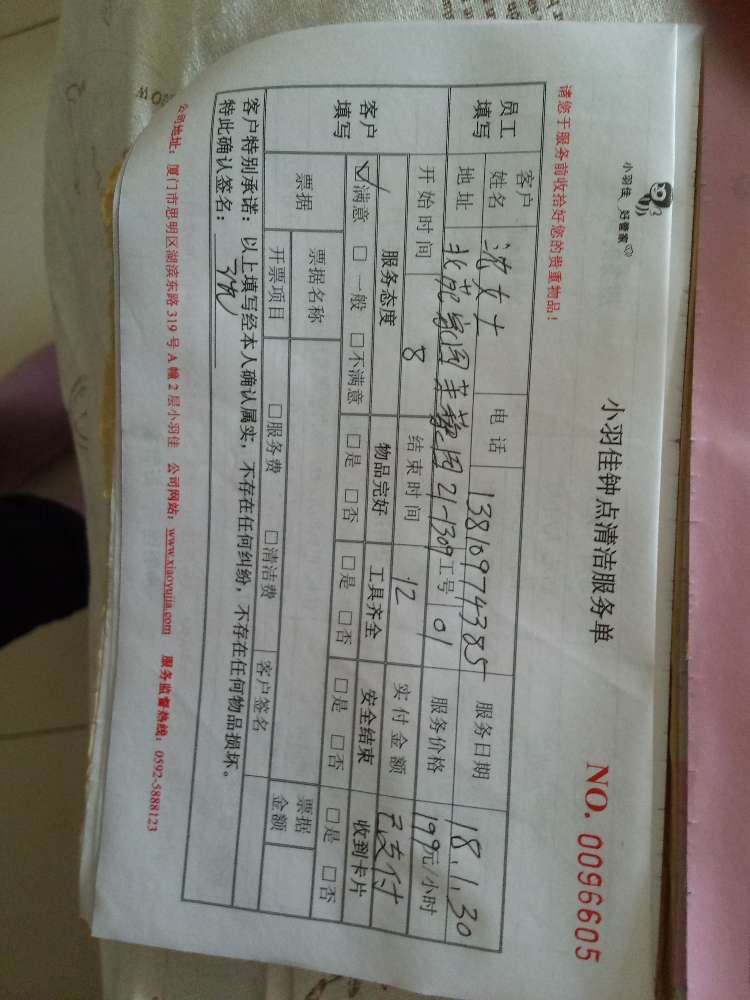 小羽佳 好管家
小羽佳钟点清洁服务单
NO. 0096605
请您于服务前收拾好您的贵重物品！
员工填写 客户姓名 沈女士 电话 13810974385 服务日期 18.1.30
地址 北苑家园 21-1309 工号 01 服务价格 199元/小时
客户填写 开始时间 8 结束时间 12 实付金额 已支付
服务态度 物品完好 工具齐全 安全结束 收到卡片
☑满意 □一般 □不满意 □是 □否 □是 □否 □是 □否 □是 □否
票据 票据名称 票据金额
开票项目 □服务费 □清洁费 客户签名
客户特别承诺：以上填写经本人确认属实，不存在任何纠纷，不存在任何物品损坏。
特此确认签名：
公司地址：厦门市思明区湖滨东路 319 号 A 幢 2 层小羽佳 公司网站：www.xiaoyujia.com 服务监督热线：0592-5888123